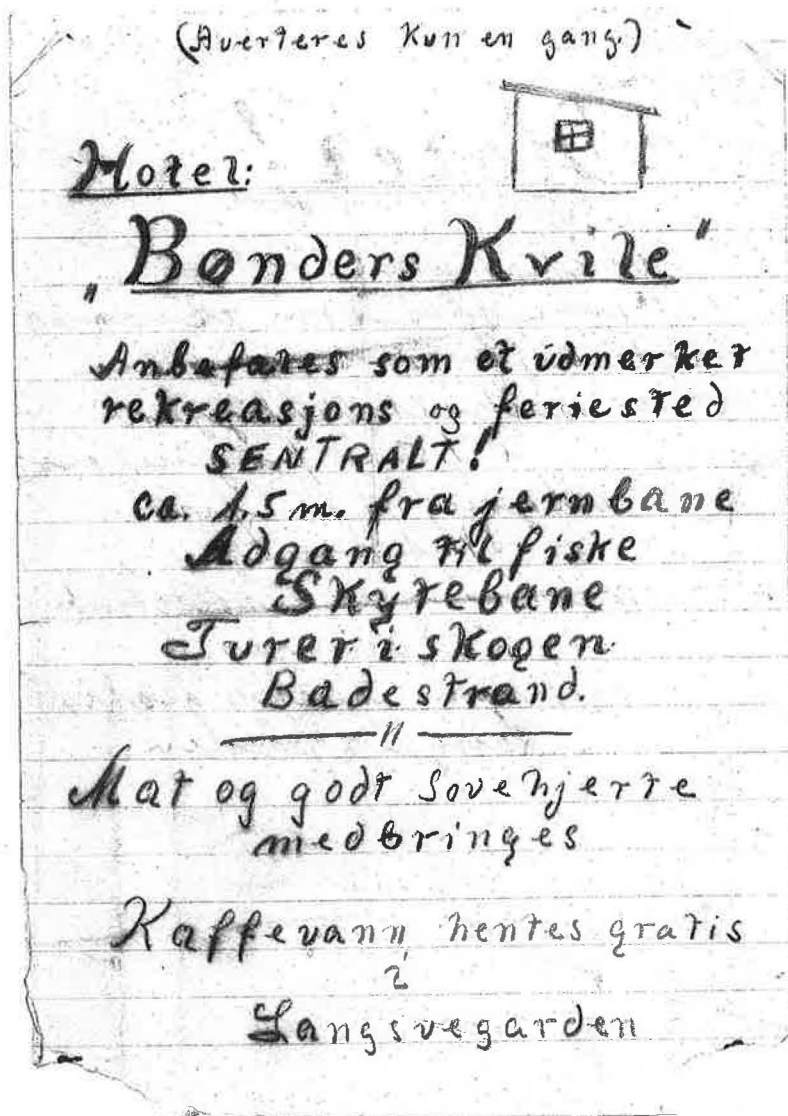 (Averteres kun en gang.)
Hotel:
„Bønders Kvile"
Anbefales som et udmerket
rekreasjons og feriested
SENTRALT!
ca. 1,5 m. fra jernbane
Adgang til fiske
Skytebane
Turer i skogen
Badestrand.
Mat og godt sovehjerte
medbringes
Kaffevann hentes gratis
i
Langsvegarden